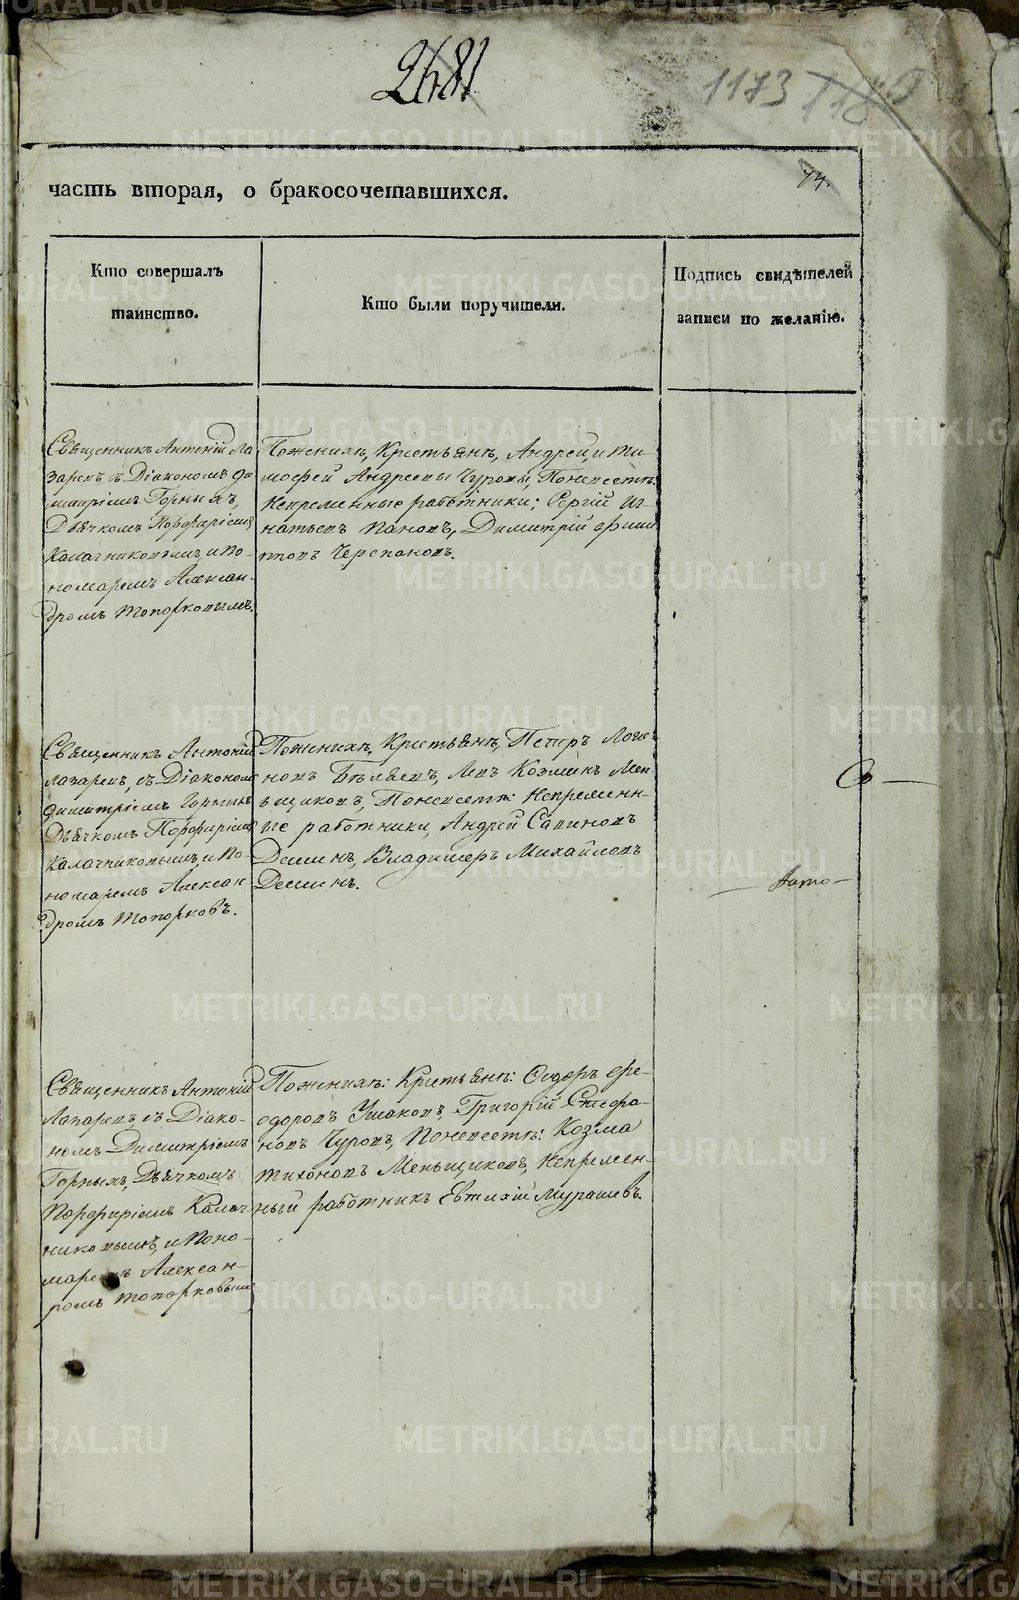 2681
1173 118
74.
часть вторая, о бракосочетавшихся.
Кто совершалъ
таинство.
Кто были поручители.
Подпись свидѣтелей
записи по желанію.
Священникъ Антоній Ла
заревъ съ Діакономъ Ди
митріемъ Горныхъ,
Дьячкомъ Порфиріемъ
Калачниковымъ, и По-
номаремъ Алексан-
дромъ Топорковымъ.
Поженихѣ, Крестьянѣ, Андрей, и Ти-
мофей Андреевы Чуровы, Поневестѣ:
Непременные работники; Сергій Иг-
натьевъ Пановъ, Димитрій Филип
повъ Черепановъ.
Священникъ Антоній
Лазаревъ, съ Діакономъ
Димитріемъ Горныхъ
Дьячкомъ Порфиріемъ
Калачниковымъ, и По-
номаремъ Алексан
дромъ Топорковъ.
Поженихѣ, Крестьянѣ, Петръ Логи-
новъ Бѣляевъ, Левъ Козминъ Мен
ьщиковъ, Поневестѣ: Непременн-
ые работники, Андрей Савиновъ
Деминъ, Владимеръ Михайловъ
Деминъ.
Священникъ Антоній
Лазаревъ, съ Діако-
номъ Димитріемъ
Горныхъ, Дьячкомъ
Порфиріемъ Калач-
никовымъ, и Поно-
маремъ Алексан-
ромъ Топорковымъ
Поженихѣ: Крестьянѣ: Сидоръ Фе-
одоровъ Ушаковъ, Григорій Стефа-
новъ Чуровъ, Поневестѣ: Козма
Тихоновъ Меньщиковъ, Непремен-
ный работникъ Евтихій Мурашевъ.
METRIKI.GASO-URAL.RU